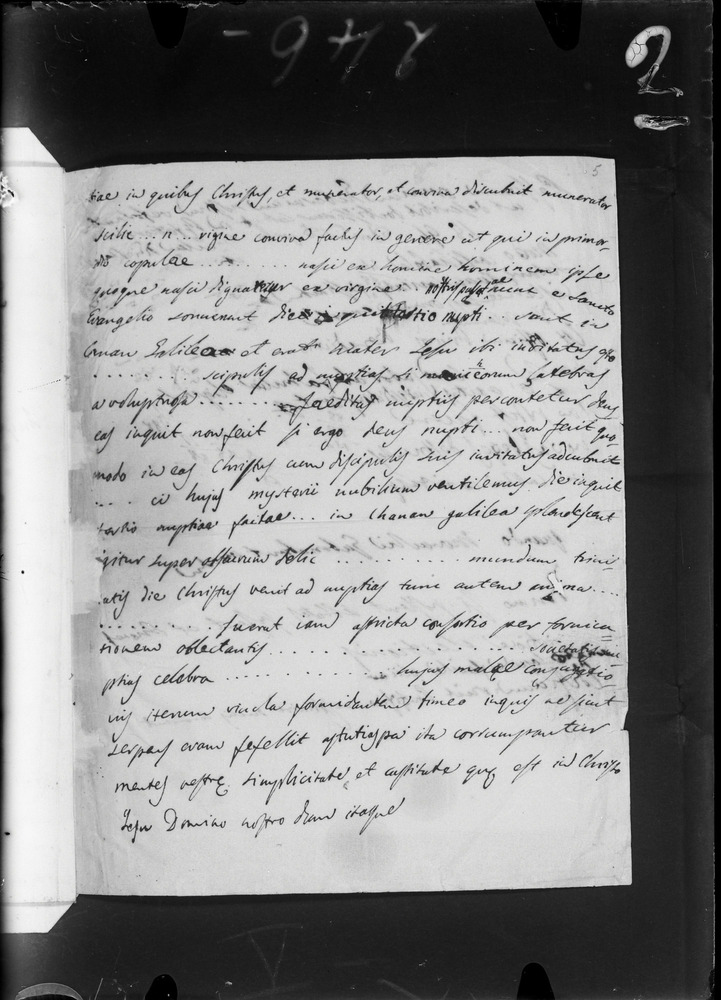 246 -
2
5
tiae in quibus Christus, et munerator, et conviva discubuit munerator
scilic ... n ... rgine conviva factus in genere ut qui in primor-
diis copulae ......... nasci ex homine hominem ipse
quoque nasci dignatur ex virgine ... e sancto
Evangelio sonuerunt die inquit tertio nupti ... sunt in
Canan Galileae et erat mater Jesu ibi invitatus
......... scipulis ad nuptias si latebras
a voluptuosa ......... faeditas nuptiis percontetur Deus
eas inquit non fecit si ergo Deus nupti ... non fecit quo-
modo in eas Christus cum discipulis suis invitatus adcubuit
.... ci hujus mysterii nubilum ventilemus die inquit
tertio nuptiae factae ... in Chanan galilea splendescent
igitur super delic ............ mundum trini-
atis die Christus venit ad nuptias tunc autem anima ....
......... fuerat iam astricta consortio per fornica-
tionem oblectantis ....................... societatis
ptias celebra ............... hujus malae conjunctio-
nis iterum vincla formidantem timeo inquit ne sicut
serpens evam fefellit astutia sua ita corrumpantur
mentes vestrę simplicitate et castitate quę est in Christo
Jesu Domino nostro dum itaque